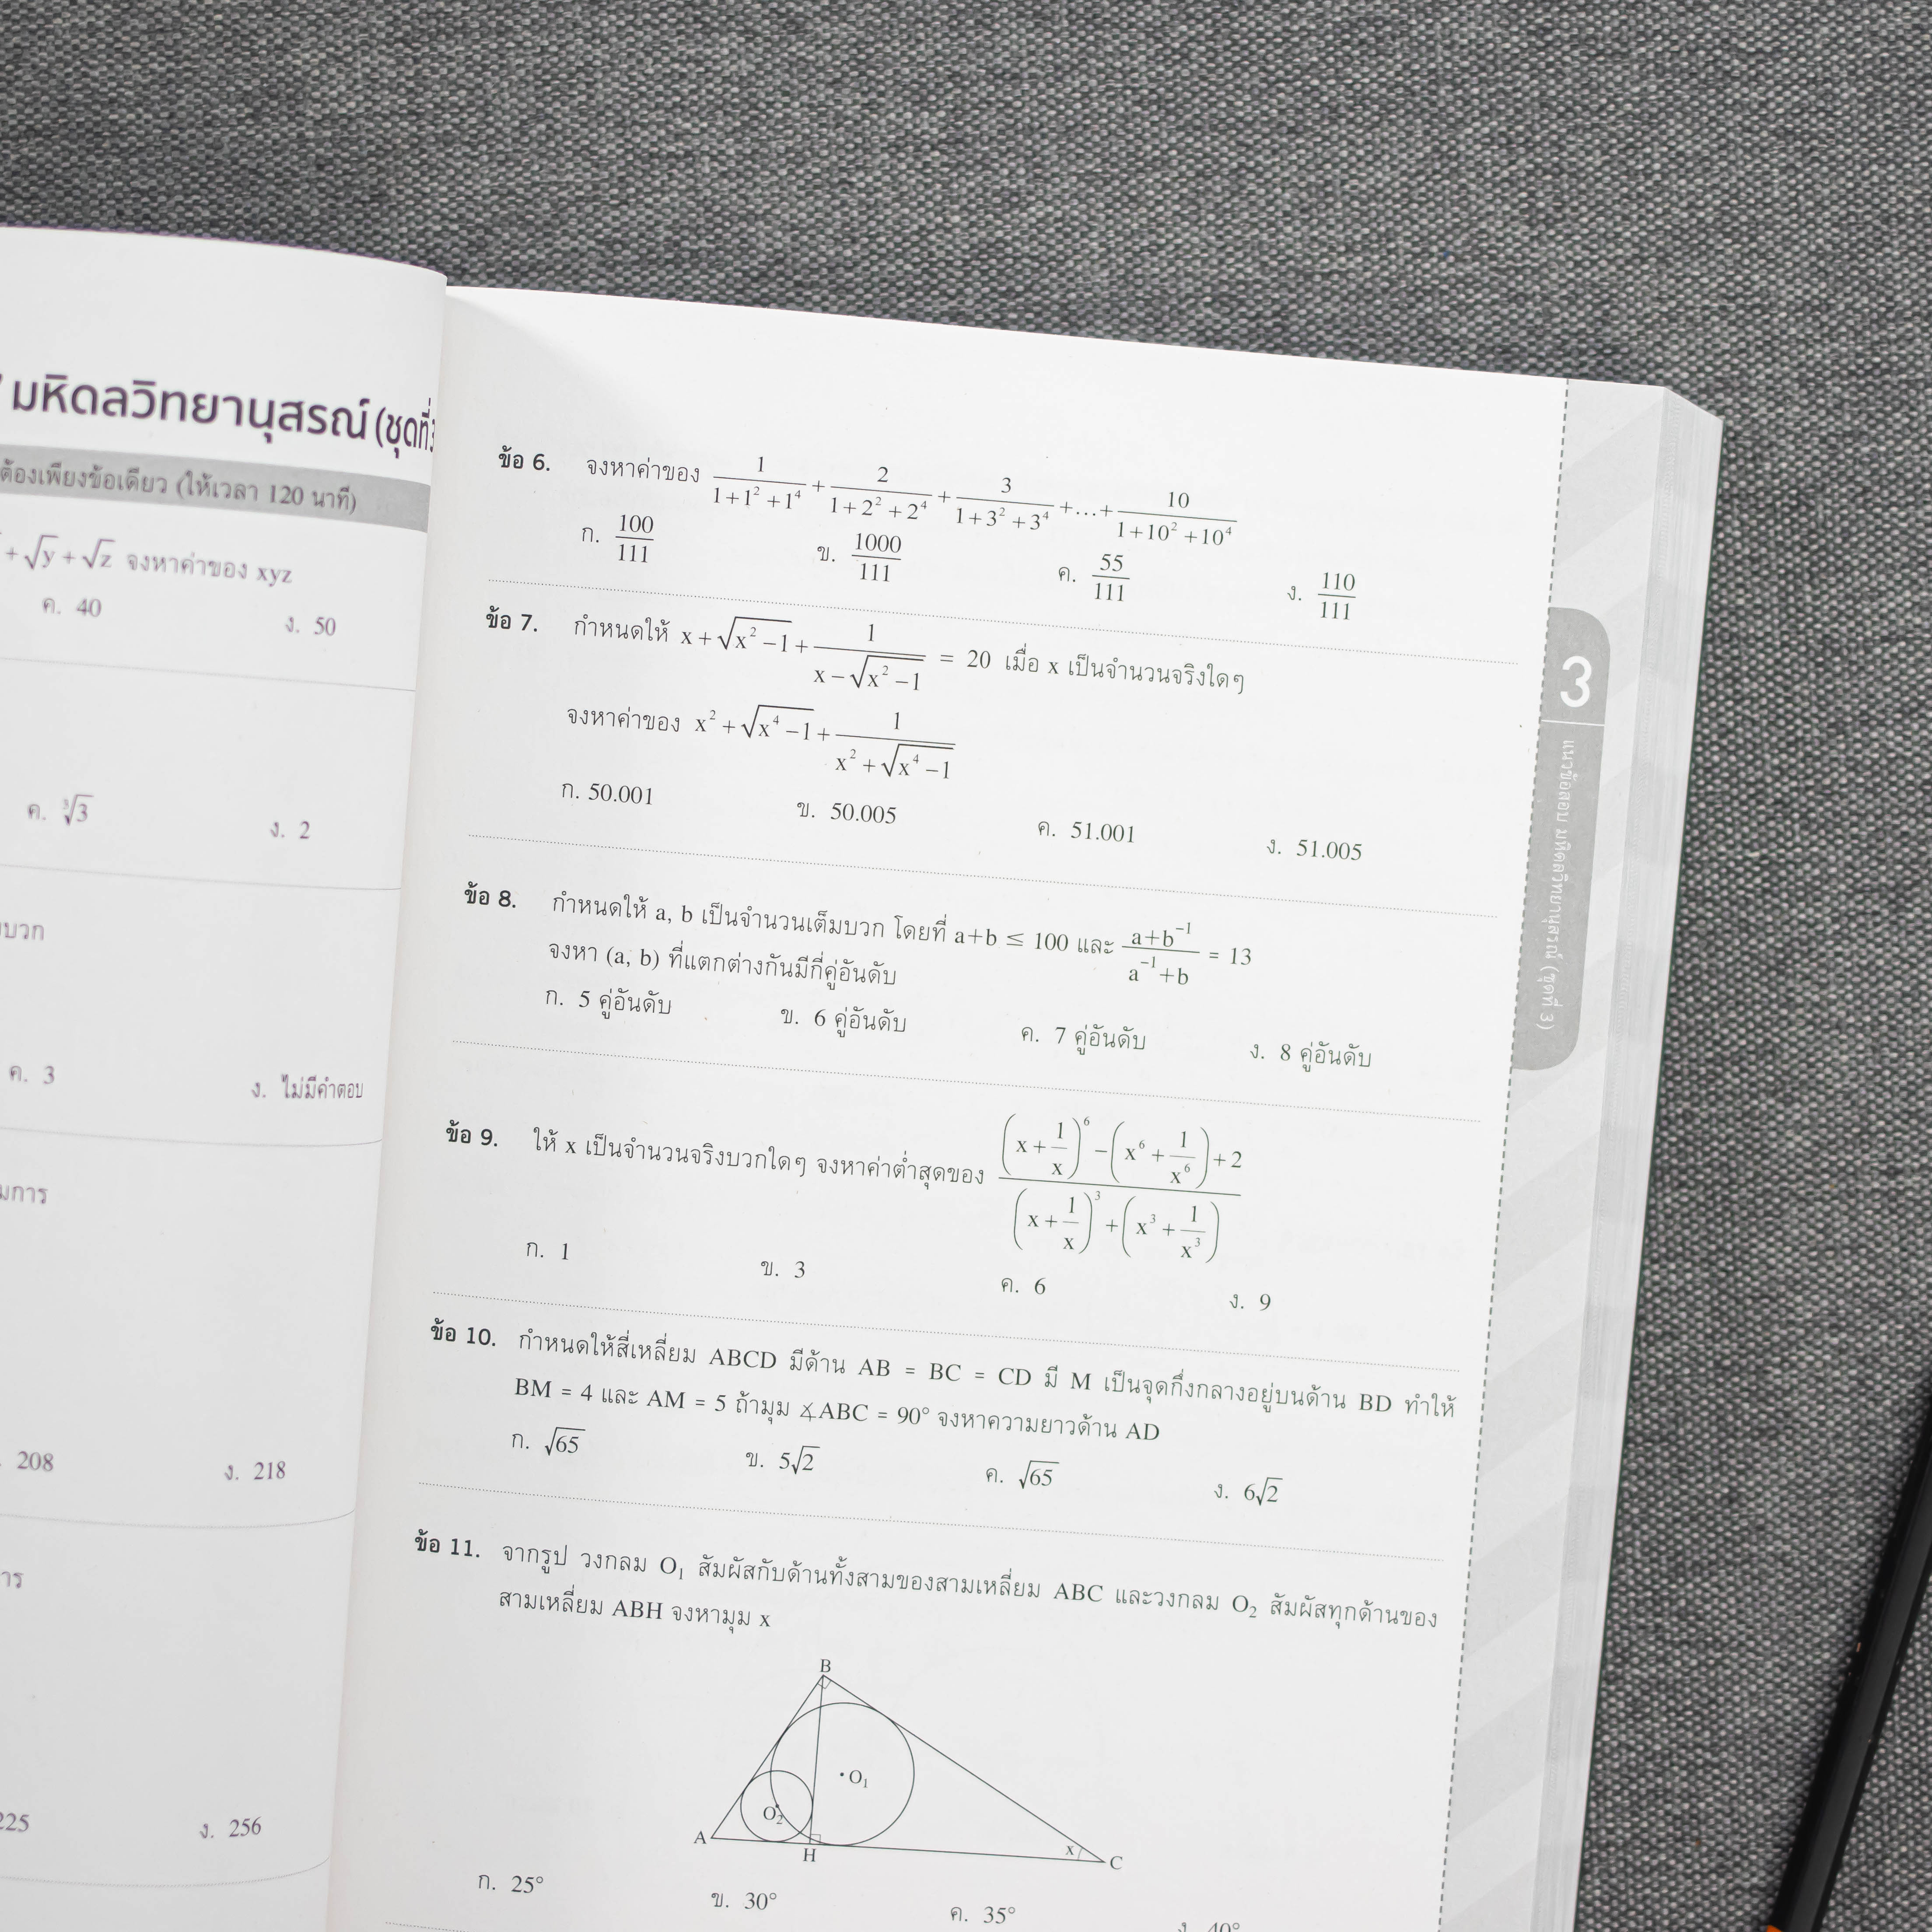 มหิดลวิทยานุสรณ์ (ชุดที่
ต้องเพียงข้อเดียว (ให้เวลา 120 นาที)
+ √y + √z จงหาค่าของ xyz
ค. 40 ง. 50
ค. ∛3 ง. 2
ค. 3 ง. ไม่มีคำตอบ
208 ง. 218
ง. 256
ข้อ 6. จงหาค่าของ 1/(1+1²+1⁴) + 2/(1+2²+2⁴) + 3/(1+3²+3⁴) +...+ 10/(1+10²+10⁴)
ก. 100/111 ข. 1000/111 ค. 55/111 ง. 110/111
ข้อ 7. กำหนดให้ x + √(x²−1) + 1/(x − √(x²−1)) = 20 เมื่อ x เป็นจำนวนจริงใดๆ
จงหาค่าของ x² + √(x⁴−1) + 1/(x² + √(x⁴−1))
ก. 50.001 ข. 50.005 ค. 51.001 ง. 51.005
ข้อ 8. กำหนดให้ a, b เป็นจำนวนเต็มบวก โดยที่ a+b ≤ 100 และ (a+b⁻¹)/(a⁻¹+b) = 13
จงหา (a, b) ที่แตกต่างกันมีกี่คู่อันดับ
ก. 5 คู่อันดับ ข. 6 คู่อันดับ ค. 7 คู่อันดับ ง. 8 คู่อันดับ
ข้อ 9. ให้ x เป็นจำนวนจริงบวกใดๆ จงหาค่าต่ำสุดของ ((x + 1/x)⁶ − (x⁶ + 1/x⁶) + 2)/((x + 1/x)³ + (x³ + 1/x³))
ก. 1 ข. 3 ค. 6 ง. 9
ข้อ 10. กำหนดให้สี่เหลี่ยม ABCD มีด้าน AB = BC = CD มี M เป็นจุดกึ่งกลางอยู่บนด้าน BD ทำให้
BM = 4 และ AM = 5 ถ้ามุม ∡ABC = 90° จงหาความยาวด้าน AD
ก. √65 ข. 5√2 ค. √65 ง. 6√2
ข้อ 11. จากรูป วงกลม O₁ สัมผัสกับด้านทั้งสามของสามเหลี่ยม ABC และวงกลม O₂ สัมผัสทุกด้านของ
สามเหลี่ยม ABH จงหามุม x
B
O₁
O₂
A H x C
ก. 25° ข. 30° ค. 35° ง. 40°
3
แนวข้อสอบ มหิดลวิทยานุสรณ์ (ชุดที่ 3)